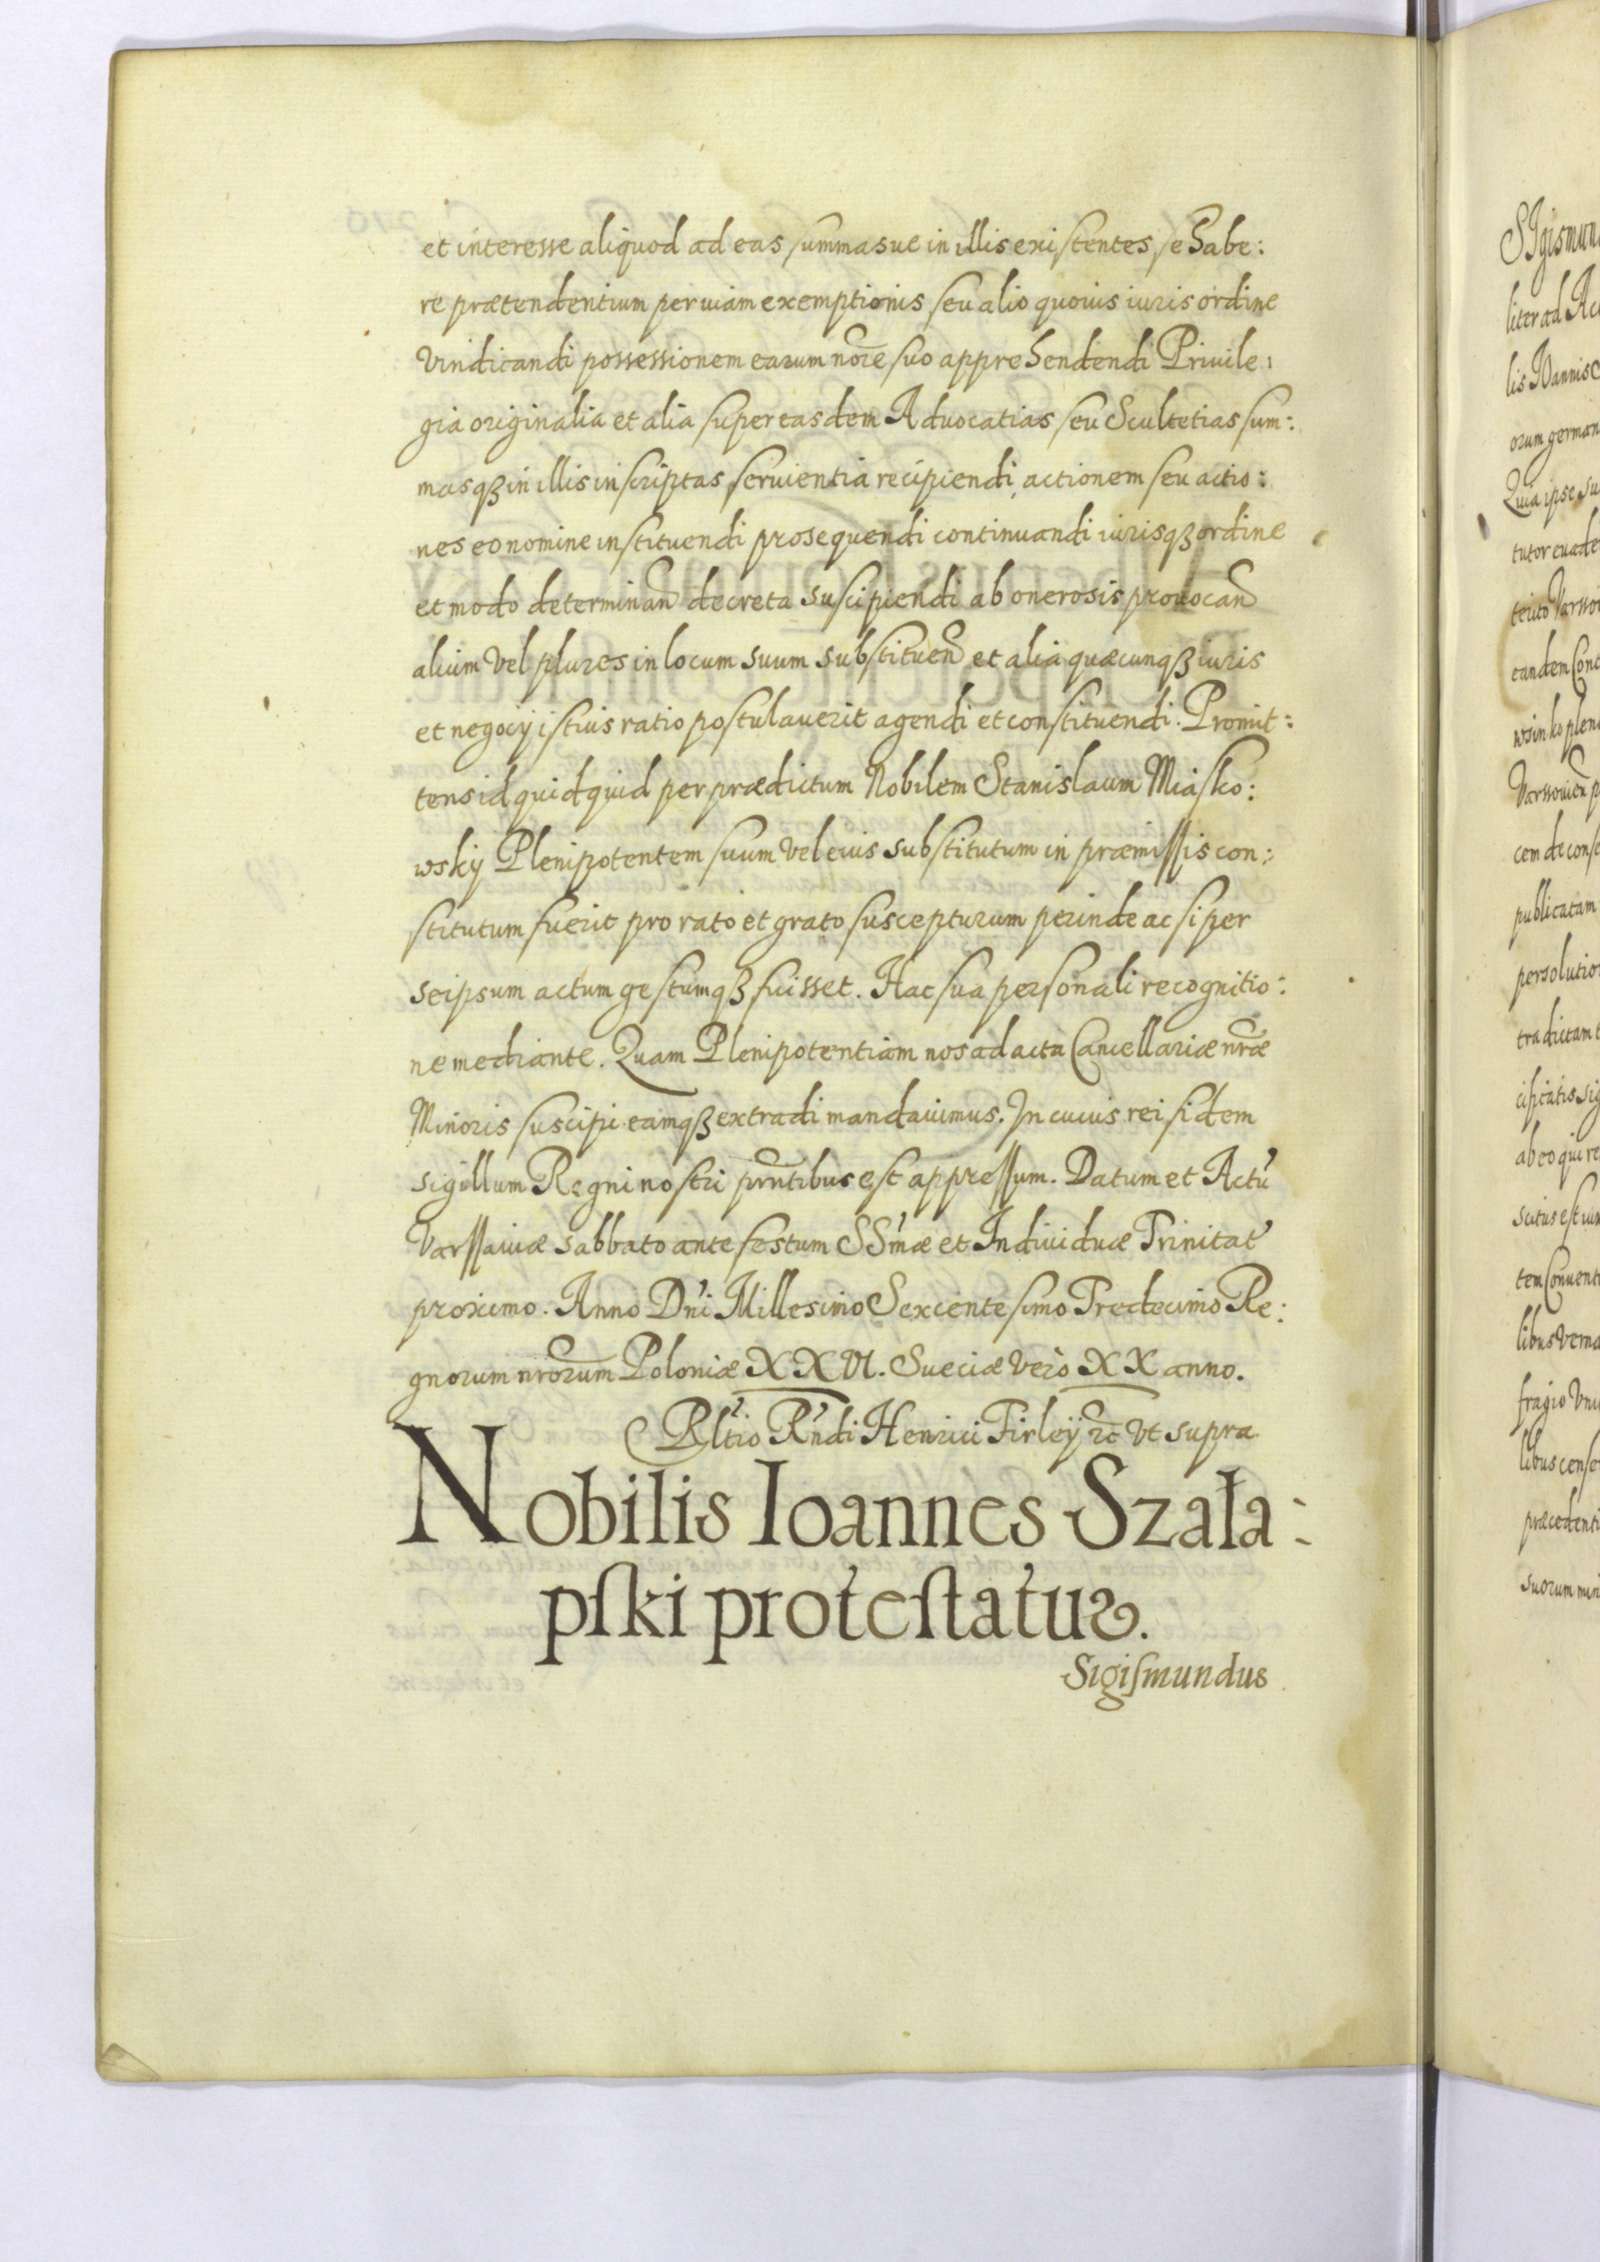 et interesse aliquod ad eas summasue in illis existentes se habe:
re prætendentium per uiam exemptionis seu alio quouis iuris ordine
Vindicandi possessionem earum nõre suo apprehendendi Priuile:
gia originalia et alia super easdem Aduocatias seu Scultetias sum:
masqȝ in illis inscriptas seruientia recipiendi, actionem seu actio:
nes eo nomine instituendi prosequendi continuandi iurisqȝ ordine
et modo determinañ decreta suscipiendi ab onerosis prouocañ
alium Vel plures in locum suum substitueñ et alia quæcunqȝ iuris
et negocÿ istius ratio postulauerit agendi et constituendi. Promit:
tens id quidquid per prædictum Nobilem Stanislaum Miasko:
wskÿ Plenipotentem suum Vel eius substitutum in præmissis con:
stitutum fuerit pro rato et grato suscepturum perinde ac si per
seipsum actum gestumqȝ fuisset. Hac sua personali recognitio:
ne mediante. Quam Plenipotentiam nos ad acta Cancellariæ nr̃æ
Minoris suscipi eamqȝ extradi mandauimus. In cuius rei fidem
sigillum Regni nostri pr̃ntibus est appressum. Datum et Actu͛
Varssauiæ sabbato ante festum SS͛mæ et Indiuiduæ Trinitat͛
proximo. Anno Dn͛i Millesimo Sexcentesimo Tredecimo Re:
gnorum nr̃orum Poloniæ XXVI. Sueciæ Vero XX anno.
Rl͛tio R͛ndi Henrici Firleÿ ꝛc̃ Vt supra
Nobilis Ioannes Szała:
pſki proteſtatus.
Sigiſmundus
SIgismun
liter ad Ac
lis Ioannis
orum german
Quia ipse su
tutor euade
tento Varsso
eandem Con
wsin ko plen
Varssouień p
cem de cons
publicatam
persolutio
tra dictam t
cificatis sig
ab eo qui re
scitus est
tem Conuent
libus Verna
fragio Vn
libus cense
præcedenti
suorum min